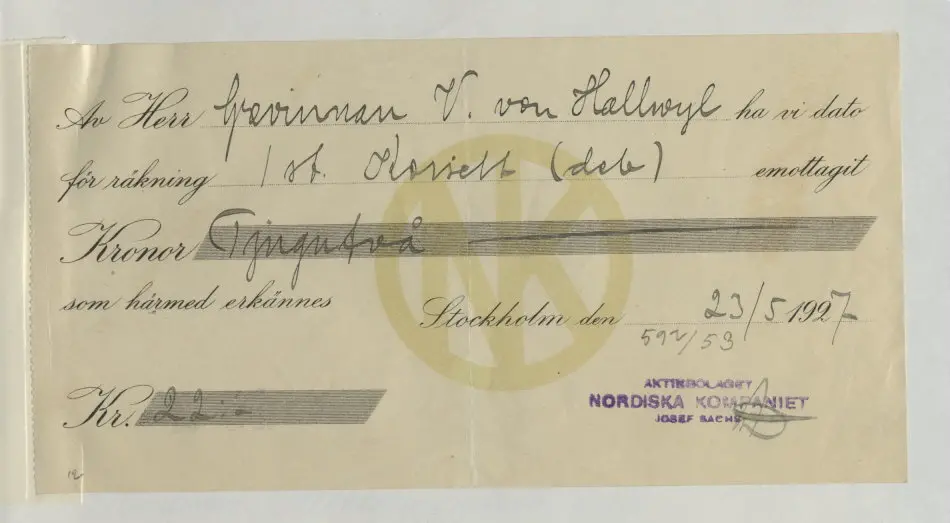 Av Herr Grevinnan V. von Hallwyl ha vi dato
för räkning 1 st. Korsett (deb) emottagit
Kronor Tjugutvå
som härmed erkännes
Stockholm den 23/5 1927
592/53
NK
Kr. 22:-
AKTIEBOLAGET
NORDISKA KOMPANIET
JOSEF SACHS
12